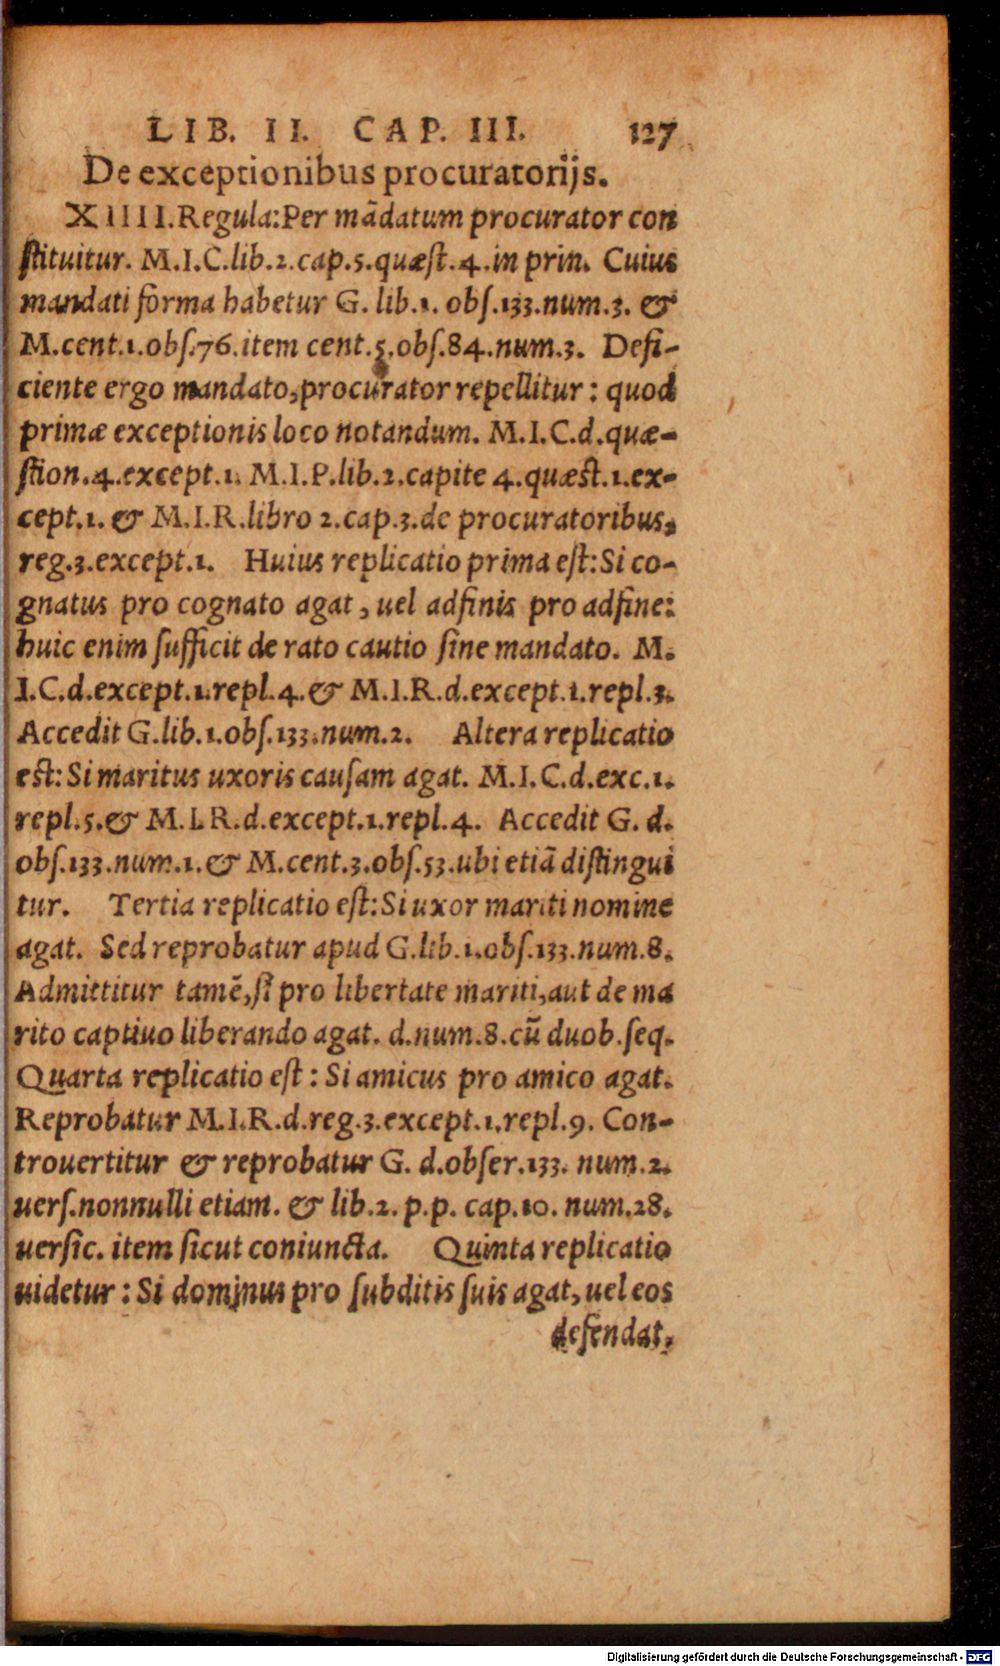 LIB. II. CAP. III. 127
De exceptionibus procuratorijs.
XIIII. Regula: Per mãdatum procurator con
stituitur. M.I.C.lib.2.cap.5.quæst.4.in prin. Cuius
mandati forma habetur G. lib.1. obs.133.num.3. &
M.cent.1.obs.76.item cent.5.obs.84.num.3. Defi-
ciente ergo mandato, procurator repellitur: quod
primæ exceptionis loco notandum. M.I.C.d.quæ-
stion.4.except.1. M.I.P.lib.2.capite 4.quæst.1.ex-
cept.1. & M.I.R.libro 2.cap.3.de procuratoribus,
reg.3.except.1. Huius replicatio prima est: Si co-
gnatus pro cognato agat, uel adfinis pro adfine:
huic enim sufficit de rato cautio sine mandato. M.
I.C.d.except.1.repl.4.& M.I.R.d.except.1.repl.3.
Accedit G.lib.1.obs.133.num.2. Altera replicatio
est: Si maritus uxoris causam agat. M.I.C.d.exc.1.
repl.5.& M.I.R.d.except.1.repl.4. Accedit G. d.
obs.133.num.1.& M.cent.3.obs.53.ubi etiã distingui
tur. Tertia replicatio est: Si uxor mariti nomine
agat. Sed reprobatur apud G.lib.1.obs.133.num.8.
Admittitur tamẽ, si pro libertate mariti, aut de ma
rito captiuo liberando agat. d.num.8.cũ duob.seq.
Quarta replicatio est: Si amicus pro amico agat.
Reprobatur M.I.R.d.reg.3.except.1.repl.9. Con-
trouertitur & reprobatur G. d.obser.133. num.2.
uers.nonnulli etiam. & lib.2. p.p. cap.10. num.28.
uersic. item sicut coniuncta. Quinta replicatio
uidetur: Si dominus pro subditis suis agat, uel eos
defendat.
Digitalisierung gefördert durch die Deutsche Forschungsgemeinschaft - DFG